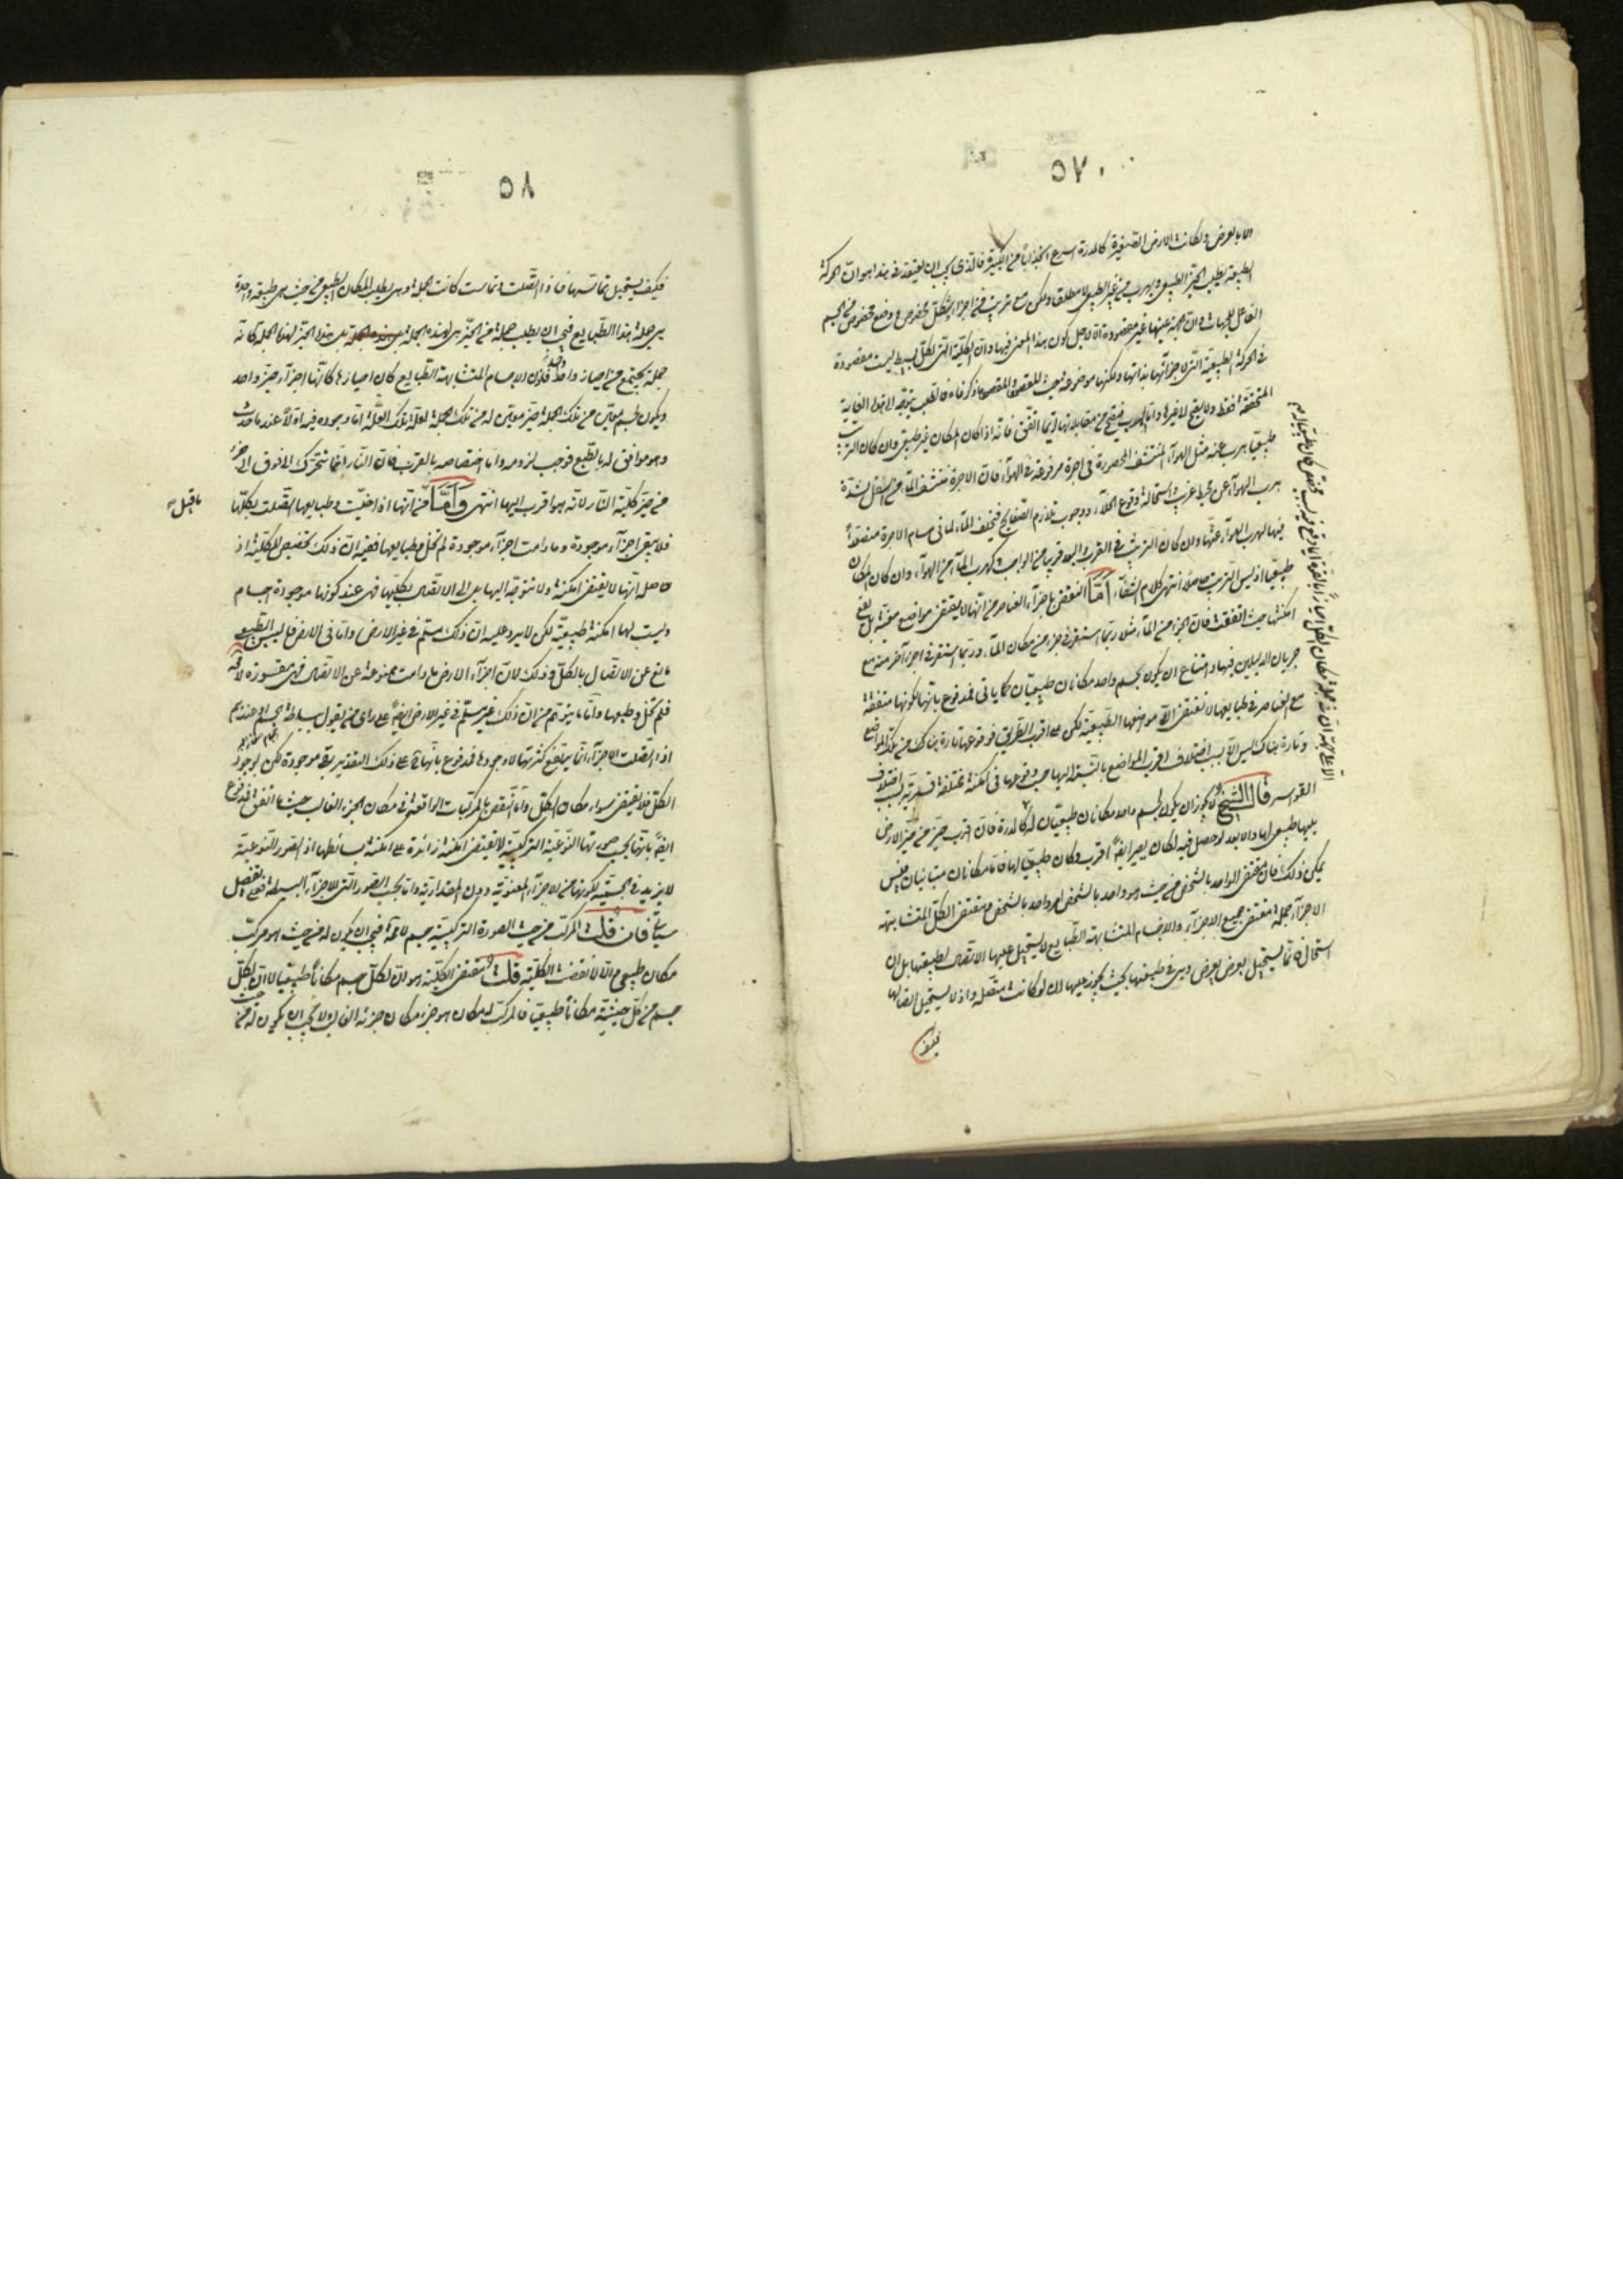 ٥٧
الا بالعرض ولكانت الارض الصغيرة كالمدرة اسرع انجذابا من الكبيرة فالذى يجب ان يعتقد فى هذا هو ان الحركة
الطبيعية يطلب الحيز الطبيعى ويهرب من غير الطبيعى لا مطلقا ولكن مع ترتيب من اجزاء الكل مخصوص ووضع مخصوص من الجسم
الفاعل للجهات وان الجهة عينها غير مقصودة الا لاجل كون هذا المعنى فيها وان الكلية التى لكل بسيط ليست مقصودة
فى الحركة الطبيعية التى لاجزائها بذاتها ولكنها موضوعة بحيث المقصود
المتحققة فقط ولا يقع لاخرها واما الهرب فيصح من مقابلاتها ايما اتفق فانه اذا كان المكان غير طبيعى وان كان الترتيب
طبيعيا هرب عنه مثل الهواء المنتشف المحصورة فى اجرة مرفوعة فى الهواء فان الاجرة تنشف الماء من اسفل لشدة
هرب الهواء عن محيط غريب واستحالة وقوع الخلاء ووجوب تلازم الصفايح فيخلف الماء لما فى مسام الاجرة متصعدا
فيها لهرب الهواء عنها وان كان الترتيب فى القرب والبعد قريبا من الواجب كهرب الماء من الهواء وان كان المكان
طبيعيا اذ ليس الترتيب حاصلا انتهى كلام الشفاء اما النقض باجزاء العناصر من انها لا يقتضى مواضع معينة بل يقع
امكنتها حيث اتفقت فان الجزء من الماء مثلا ربما استقر فى جزء من مكان الماء وربما استقر فى اجزاء آخر منه مع
جريان الدليلين فيها وامتناع ان يكون لجسم واحد مكانان طبيعيان كما ياتى فمدفوع بانها لكونها متفقة
مع العناصر فى طبايعها لا تقتضى الا مواضعها الطبيعية لكن على اقرب الطريق فوقوعها تارة هناك من تلك المواضع
وتارة هناك ليس الا بسبب اختلاف اقرب المواضع بالنسبة اليها حيث وقوعها فى امكنة مختلفة قسرية بسبب اختلاف
القواسر قال الشيخ لا يجوز ان يكون لجسم واحد مكانان طبيعيان له كالمدرة فان اقرب حيز من حيز الارض
يليها طبيعى لها والابعد لو حصل فيه لكان يصير ايضا اقرب وكان طبيعيا لها فاما مكانان متباينان فليس
يمكن ذلك فان مقتضى الواحد بالشخص من حيث هو واحد بالشخص امر واحد بالشخص ومقتضى الكل المتشابهة
الاجزاء جملة مقتضى جميع الاجزاء والاجسام المتشابهة الطبايع لا يستحيل عليها الاتصال لطبيعتها بل ان
استحال فانما يستحيل بعرض يعرض وهى فى طبيعتها بحيث يجوز عليها ان لو كانت متصلة واذ لا يستحيل اتصالها
فكيف
٥٨
فكيف يستحيل تماسها فاذا اتصلت وتماست كانت الجملة وهى يطلب المكان الطبيعى من حيث هى طبيعة واحدة
هى جملة هذا الطبايع فيجب ان يطلب جملة من الحيز هى لهذه الجملة هذا الحيز لهذا الجملة كانه
جملة يجتمع من احياز واحد فاذن الاجسام المتشابهة الطبايع كان احيازها كانها اجزاء حيز واحد
ويكون لجسم معين من تلك الجملة حيز معين له من تلك الجملة لعلة تلك العلة اما وجوده فيه اولا عند ما حدث
وهو موافق له بالطبع فوجب لزومه واما اختصاصه بالقرب فان النار انما تتحرك الى فوق الى جزء
من حيز كلية النار لانه هو اقرب اليها انتهى واما ما قيل من انها اذا خليت وطبايعها اتصلت بكلها
فلا يبقى اجزاء موجودة وما دامت اجزاء موجودة لم تخل وطبايعها ففيه ان ذلك تخصيص للكلية اذ
حاصله انها لا يقتضى امكنة ولا تتوجه اليها بل الى الاتصال بكليتها فهى عند كونها موجودة اجسام
وليست لها امكنة طبيعية لكن لا يرد عليه ان ذلك مسلم فى غير الارض واما فى الارض فاليبس الطبيعى
مانع عن الاتصال بالكل وذلك لان اجزاء الارض ما دامت ممنوعة عن الاتصال فهى مقسورة لانه
فلم تخل وطبعها واما ما يتوهم من ان ذلك غير مسلم فى غير الارض ايضا على راى من يقول ببساطة الجسم اى عندهم
اذا اتصلت الاجزاء انما يرتفع كثرتها لا وجودها فمدفوع بانها على ذلك التقدير يبقى موجودة لكن بوجود
الكل فلا يقتضى سواء مكان الكل واما النقض بالمركبات الواقعة فى مكان الجزء الغالب حيث اتفق فمدفوع
ايضا بانها بحسب صورتها النوعية التركيبية لا يقتضى امكنة زائدة على امكنة بسائطها اذ الصور النوعية
لا يزيد فى الجسمية لكونها من الاجزاء المعنوية دون المقدارية واما بحسب الصور التى للاجزاء البسيطة فعلى تفصيل
سياتى فان قلت المركب من حيث الصورة التركيبية جسم لا محة فيجب ان يكون له من حيث هو مركب
مكان طبيعى والا لانتقضت الكلية قلت مقتضى الكلية هو ان لكل جسم مكانا طبيعيا لا ان لكل
جسم من كل حيثية مكانا طبيعيا فالمركب له مكان هو جزء مكان جزئه الغالب ولا يجب ان يكون له من حيث